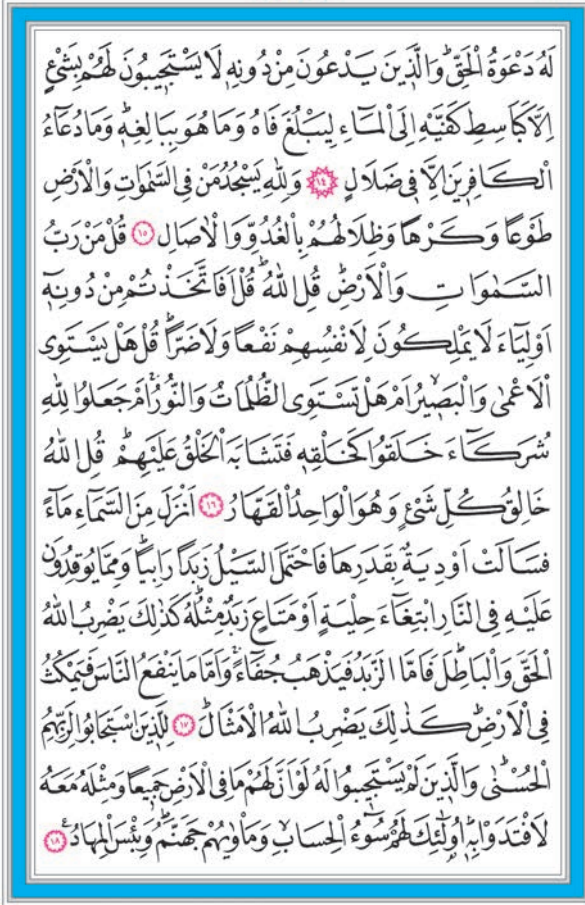 لَهُ دَعْوَةُ الْحَقِّۜ وَالَّذ۪ينَ يَدْعُونَ مِنْ دُونِه۪ لَا يَسْتَج۪يبُونَ لَهُمْ بِشَيْءٍ
اِلَّا كَبَاسِطِ كَفَّيْهِ اِلَى الْمَٓاءِ لِيَبْلُغَ فَاهُ وَمَا هُوَ بِبَالِغِه۪ۜ وَمَا دُعَٓاءُ
الْكَافِر۪ينَ اِلَّا ف۪ي ضَلَالٍ ﴿١٤﴾ وَلِلّٰهِ يَسْجُدُ مَنْ فِي السَّمٰوَاتِ وَالْاَرْضِ
طَوْعًا وَكَرْهًا وَظِلَالُهُمْ بِالْغُدُوِّ وَالْاٰصَالِ ﴿١٥﴾ قُلْ مَنْ رَبُّ
السَّمٰوَاتِ وَالْاَرْضِۜ قُلِ اللّٰهُۜ قُلْ اَفَاتَّخَذْتُمْ مِنْ دُونِه۪ٓ
اَوْلِيَٓاءَ لَا يَمْلِكُونَ لِاَنْفُسِهِمْ نَفْعًا وَلَا ضَرًّاۜ قُلْ هَلْ يَسْتَوِي
الْاَعْمٰى وَالْبَص۪يرُ اَمْ هَلْ تَسْتَوِي الظُّلُمَاتُ وَالنُّورُۚ اَمْ جَعَلُوا لِلّٰهِ
شُرَكَٓاءَ خَلَقُوا كَخَلْقِه۪ فَتَشَابَهَ الْخَلْقُ عَلَيْهِمْۜ قُلِ اللّٰهُ
خَالِقُ كُلِّ شَيْءٍ وَهُوَ الْوَاحِدُ الْقَهَّارُ ﴿١٦﴾ اَنْزَلَ مِنَ السَّمَٓاءِ مَٓاءً
فَسَالَتْ اَوْدِيَةٌ بِقَدَرِهَا فَاحْتَمَلَ السَّيْلُ زَبَدًا رَابِيًاۜ وَمِمَّا يُوقِدُونَ
عَلَيْهِ فِي النَّارِ ابْتِغَٓاءَ حِلْيَةٍ اَوْ مَتَاعٍ زَبَدٌ مِثْلُهُۜ كَذٰلِكَ يَضْرِبُ اللّٰهُ
الْحَقَّ وَالْبَاطِلَۜ فَاَمَّا الزَّبَدُ فَيَذْهَبُ جُفَٓاءًۚ وَاَمَّا مَا يَنْفَعُ النَّاسَ فَيَمْكُثُ
فِي الْاَرْضِۜ كَذٰلِكَ يَضْرِبُ اللّٰهُ الْاَمْثَالَۜ ﴿١٧﴾ لِلَّذ۪ينَ اسْتَجَابُوا لِرَبِّهِمُ
الْحُسْنٰىۜ وَالَّذ۪ينَ لَمْ يَسْتَج۪يبُوا لَهُ لَوْ اَنَّ لَهُمْ مَا فِي الْاَرْضِ جَم۪يعًا وَمِثْلَهُ مَعَهُ
لَافْتَدَوْا بِه۪ۜ اُو۬لٰٓئِكَ لَهُمْ سُٓوءُ الْحِسَابِ وَمَأْوٰيهُمْ جَهَنَّمُۜ وَبِئْسَ الْمِهَادُ۟ ﴿١٨﴾